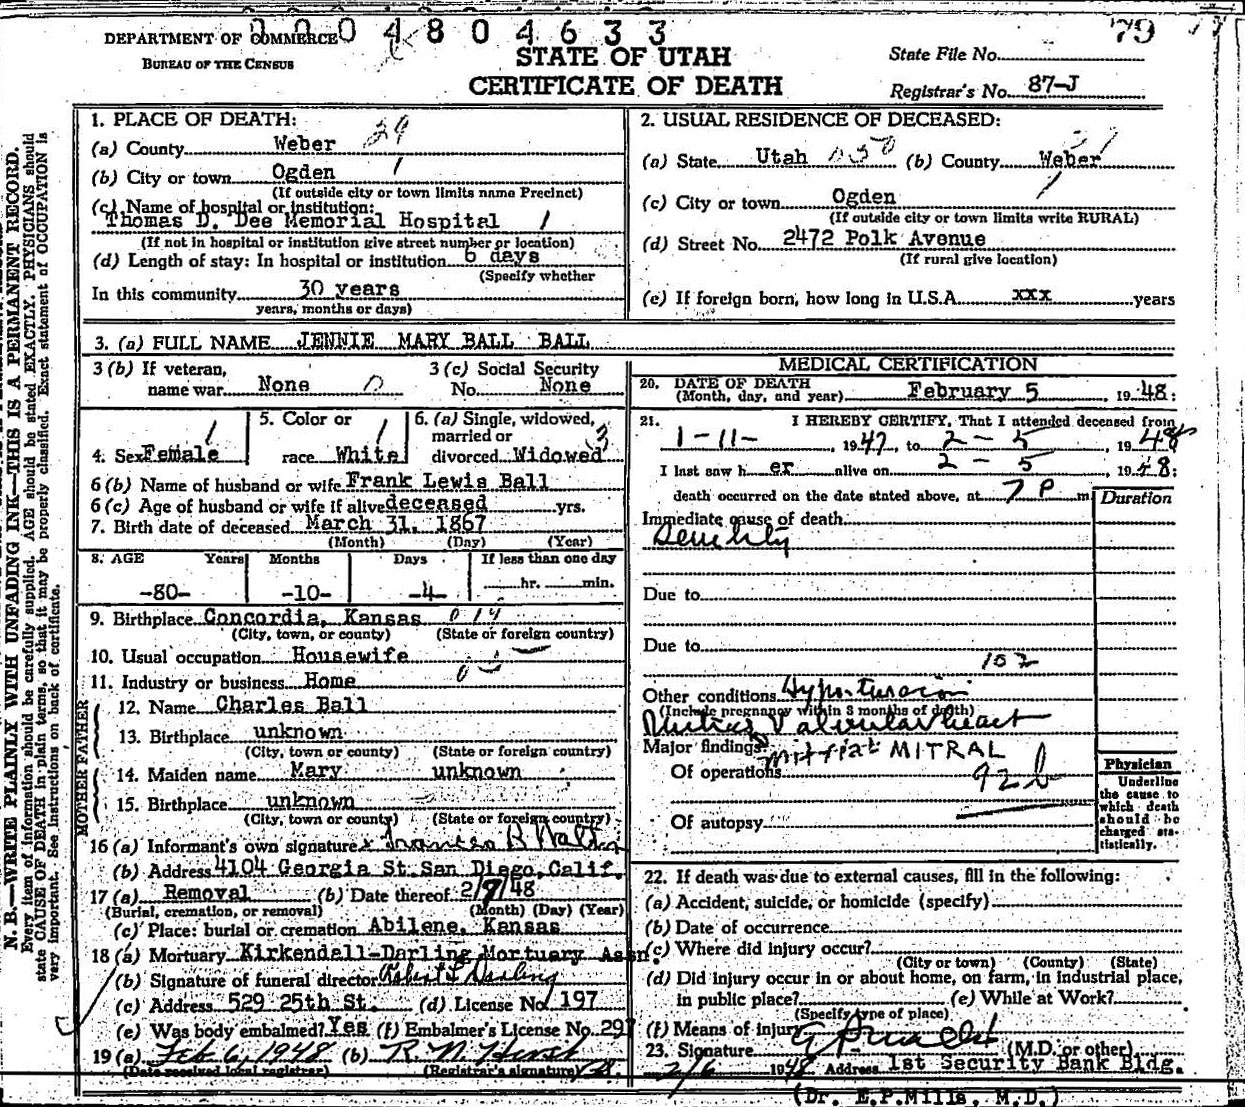 2004804633
79
DEPARTMENT OF COMMERCE
BUREAU OF THE CENSUS
STATE OF UTAH
CERTIFICATE OF DEATH
State File No.
Registrar's No. 87-J
N. B.—WRITE PLAINLY WITH UNFADING INK—THIS IS A PERMANENT RECORD.
Every item of information should be carefully supplied. AGE should be stated EXACTLY. PHYSICIANS should
state CAUSE OF DEATH in plain terms, so that it may be properly classified. Exact statement of OCCUPATION is
very important. See instructions on back of certificate.
1. PLACE OF DEATH:
(a) County Weber 29
(b) City or town Ogden
(If outside city or town limits name Precinct)
(c) Name of hospital or institution:
Thomas D. Dee Memorial Hospital
(If not in hospital or institution give street number or location)
(d) Length of stay: In hospital or institution 6 days
(Specify whether
In this community 30 years
years, months or days)
2. USUAL RESIDENCE OF DECEASED:
(a) State Utah (b) County Weber
(c) City or town Ogden
(If outside city or town limits write RURAL)
(d) Street No. 2472 Polk Avenue
(If rural give location)
(e) If foreign born, how long in U.S.A. xxx years
3. (a) FULL NAME JENNIE MARY BALL BALL
3 (b) If veteran, name war None 0
3 (c) Social Security No. None
4. Sex Female
5. Color or race White
6. (a) Single, widowed, married or divorced Widowed 3
6 (b) Name of husband or wife Frank Lewis Ball
6 (c) Age of husband or wife if alive deceased yrs.
7. Birth date of deceased March 31, 1867
(Month) (Day) (Year)
8. AGE Years Months Days If less than one day
-80- -10- -4- hr. min.
9. Birthplace Concordia, Kansas 014
(City, town, or county) (State or foreign country)
10. Usual occupation Housewife
11. Industry or business Home
FATHER
12. Name Charles Ball
13. Birthplace unknown
(City, town or county) (State or foreign country)
MOTHER
14. Maiden name Mary unknown
15. Birthplace unknown
(City, town or county) (State or foreign country)
16 (a) Informant's own signature x Frances B
(b) Address 4104 Georgia St. San Diego, Calif.
17 (a) Removal (b) Date thereof 2/9/48
(Burial, cremation, or removal) (Month) (Day) (Year)
(c) Place: burial or cremation Abilene, Kansas
18 (a) Mortuary Kirkendall-Darling Mortuary Assn.
(b) Signature of funeral director Robert L Darling
(c) Address 529 25th St. (d) License No. 197
(e) Was body embalmed? Yes (f) Embalmer's License No. 297
19 (a) Feb 6, 1948 (b) R. N. Hirst
(Date received local registrar) (Registrar's signature)
MEDICAL CERTIFICATION
20. DATE OF DEATH
(Month, day, and year) February 5, 1948:
21. I HEREBY CERTIFY, That I attended deceased from
1-11-, 1947, to 2-5, 1948
I last saw her alive on 2-5, 1948:
death occurred on the date stated above, at 7 P m
Duration
Immediate cause of death
Senility
Due to
Due to
102
Other conditions Hypertension
(Include pregnancy within 3 months of death)
Valvular heart
Major findings: MITRAL
Of operations 92b
Of autopsy
Physician
Underline
the cause to
which death
should be
charged sta-
tistically.
22. If death was due to external causes, fill in the following:
(a) Accident, suicide, or homicide (specify)
(b) Date of occurrence
(c) Where did injury occur?
(City or town) (County) (State)
(d) Did injury occur in or about home, on farm, in industrial place,
in public place? (e) While at Work?
(Specify type of place)
(f) Means of injury
23. Signature (M.D. or other)
2/6 1948 Address 1st Security Bank Bldg.
(Dr. E.P.Mills, M.D.)